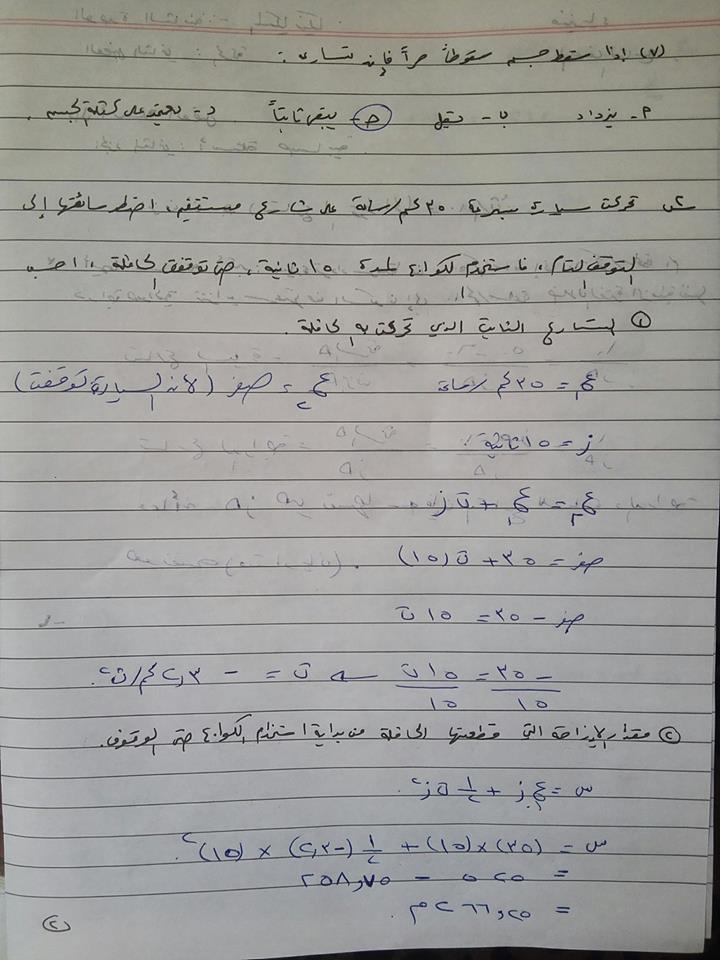 (٧) إذا سقط جسم سقوطاً حراً فإن تسارعه :
أ- يزداد ب- يقل ج- يبقى ثابتاً د- يعتمد على كتلة الجسم .
س٢ تحركت سيارة بسرعة ٣٥ كم/ساعة على شارع مستقيم، اضطر سائقها إلى
التوقف التام، فاستخدم الكوابح لمدة ١٥ ثانية، حتى توقفت الحافلة، احسب
① التسارع الثابت الذي تحركت به الحافلة .
ع١ = ٣٥ كم/ساعة ع٢ = صفر (لأن السيارة توقفت)
ز = ١٥ ثانية
ع٢ = ع١ + ت ز
صفر = ٣٥ + ت (١٥)
صفر - ٣٥ = ١٥ ت
-٣٥/١٥ = ١٥ ت/١٥ ⇐ ت = - ٢,٣ كم/ث٢.
② مقدار الإزاحة التي قطعتها الحافلة من بداية استخدام الكوابح حتى الوقوف.
س = ع١ز + ١/٢ ت ز٢.
س = (٣٥)×(١٥) + ١/٢ (-٢,٣) × (١٥)٢.
= ٥٢٥ - ٢٥٨,٧٥
= ٢٦٦,٢٥ م.
②